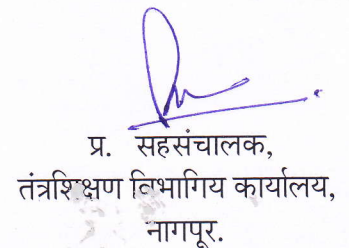 प्र. सहसंचालक,
तंत्रशिक्षण विभागिय कार्यालय,
नागपूर.